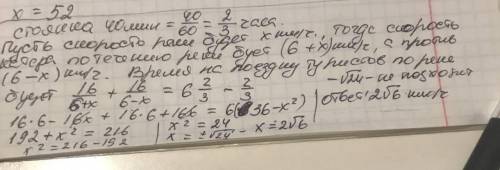 x = 52
стоянка 40 мин = 40/60 = 2/3 часа.
Пусть скорость реки будет x км/ч, тогда скорость
катера по течению реки будет (6 + x) км/ч, а против
(6 - x) км/ч. Время на поездку туристов по реке
будет 16/(6+x) + 16/(6-x) = 6 2/3 - 2/3
-√24 - не подходит
16·6 - 16x + 16·6 + 16x = 6(36 - x²)
192 + x² = 216
x² = 216 - 192
x² = 24
x = ±√24 - x = 2√6
ответ: 2√6 км/ч